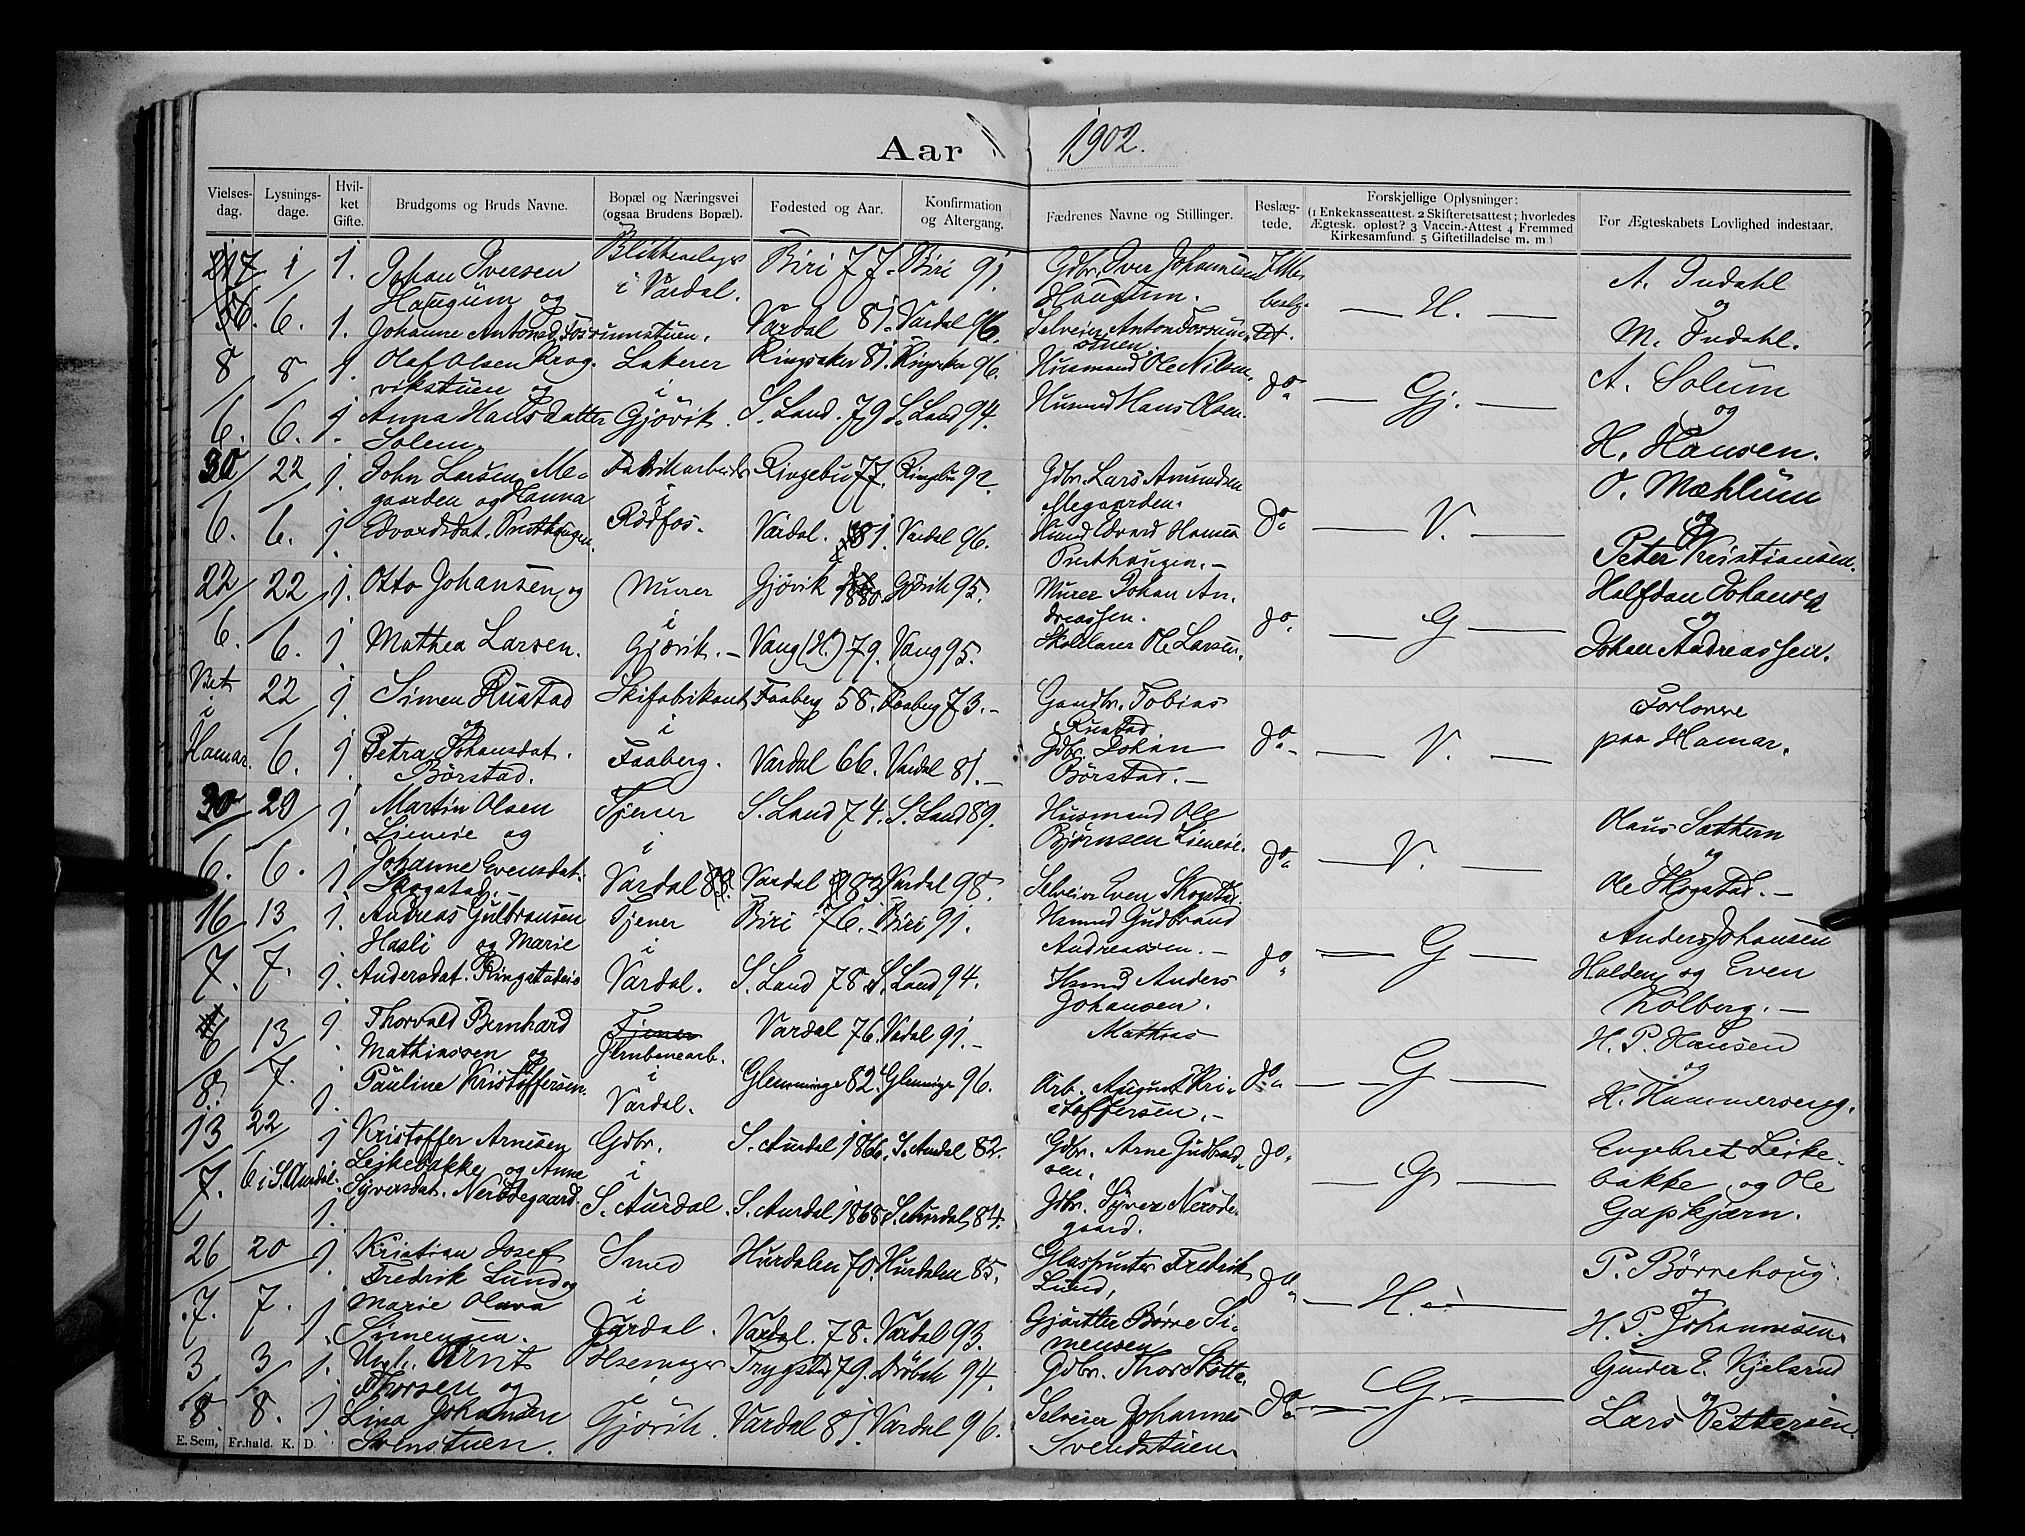 Aar 1902.
Vielses-dag. Lysnings-dage. Hvilket Gifte. Brudgoms og Bruds Navne. Bopæl og Næringsvei (ogsaa Brudens Bopæl). Fødested og Aar. Konfirmation og Altergang. Fædrenes Navne og Stillinger. Beslægtede. Forskjellige Oplysninger: (1 Enkekasseattest. 2 Skifteretsattest; hvorledes Ægtesk. opløst? 3 Vaccin.-Attest 4 Fremmed Kirkesamfund. 5 Giftetilladelse m. m.) For Ægteskabets Lovlighed indestaar.
1 1. Johan Iversen Biri 77. Biri 91. Gdbr. Iver Johannesen A. Indahl
Haugum og i Vardal. Haugum. — H. — og
6. 1. Johanne Antonsd. Fossumstuen. Vardal 81. Vardal 96. Selveier Anton Fossum-stuen. M. Indahl.
8 8 1. Olaf Olsen Krog- Ringsaker 81. Ringsaker 96. Husmand Ole Nilsen. do A. Solum
vikstuen og i — Gj. — og
6. 6. 1. Anna Hansdatter Gjøvik. S. Land. 79 S. Land 94. Husmd Hans Olsen. H. Hansen.
Solem
30 22 1. John Larsen Me- Fabrikarbeider Ringebu 77. Ringebu 92. Gdbr. Lars Amundsen O. Mæhlum
gaarden og Hanna i Megaarden. do — V. — og
6. 6. 1 Edvardsdat. Presthaugen. Rødfos. Vardal. 81. Vardal 96. Husmd Edvard Hansen Peter Kristiansen.
Presthaugen. —
22 22 1. Otto Johansen og Murer Gjøvik 1880. Gjøvik 95. Murer Johan An- Halfdan Johansen
i dreassen. do — G — og
6. 6. 1 Mathea Larsen. Gjøvik. — Vang (H.) 79. Vang 95. Ole Larsen. Johan Andreassen.
Viet 22 1 Simen Rustad Skifabrikant Faaberg 58. Faaberg 73. — Gaardbr. Tobias Forlovere
i og i Rustad do — V. — paa Hamar.
Hamar. 6. 1 Petra Johansdat. Faaberg. Vardal 66. Vardal 81. — Gdbr. Johan
Børstad. Børstad. —
30 29 1. Martin Olsen Tjener S. Land 74. S. Land 89. Husmand Ole Olaus Sættern
Lieneie og i Bjørnsen Lieneie. do — V. — og
6. 6. 1 Johanne Evensdat. Vardal Vardal 83 Vardal 98. Selveier Even Skogstad. Ole Skogstad. —
Skogstad. —
16 13 1. Andreas Gulbransen Tjener Biri 76. — Biri 91. Husmd Gudbrand Anders Johansen
Hasli og Marie i Andreassen. — do — G — Halden og Even
7. 7. 1 Andersdat. Ringstadeie Vardal. S. Land 78. S. Land 94. Husmd Anders Kolberg. —
Johansen.
6 13 1. Thorvald Bernhard Tjener Vardal 76. Vardal 91. — Mathias H. P. Hansen
Mathiassen og Jernbanearb. do — G — og
8. 7. 1. Pauline Kristoffersen. i Vardal. Glemminge 82. Glemminge 96. Arb. August Kri-stoffersen. —
13 22 1 Kristoffer Arnesen Gdbr. S. Aurdal 1866. S. Aurdal 82. Gdbr. Arne Gudbrand- do Engebret Leike-
Leikebakke og Anne i sen. — G — bakke og Ole
7. 6 i S. Aurdal. 1. Syversdat. Nerødegaard. S. Aurdal. S. Aurdal 1868. S. Aurdal 84. Gdbr. Syver Nerøde-gaard. Gapkjærn.
26 20 1 Kristian Josef Smed Hurdalen 70. Hurdalen 85. Glaspuster Fredrik do P. Børrehaug
Fredrik Lund og i Lund, — H. — og
7. 7. 1. Marie Olava Vardal. Vardal. 78. Vardal 93. Gjørtler Børre Si-mensen H. P. Johannesen
Simensen.
3 3 1. Ungk. Arnt Pølsemager Trygstad 79. Drøbak 94. Gdbr. Thor Gunder E. Kjelsrud
Thorsen og i do — G. — og
8. 8. 1 Lina Johansen Gjøvik. Vardal 81. Vardal 96. Selveier Johannes Lars Pettersen.
Svenstuen. Svendstuen.
E. Sem, Fr.hald. K. D.